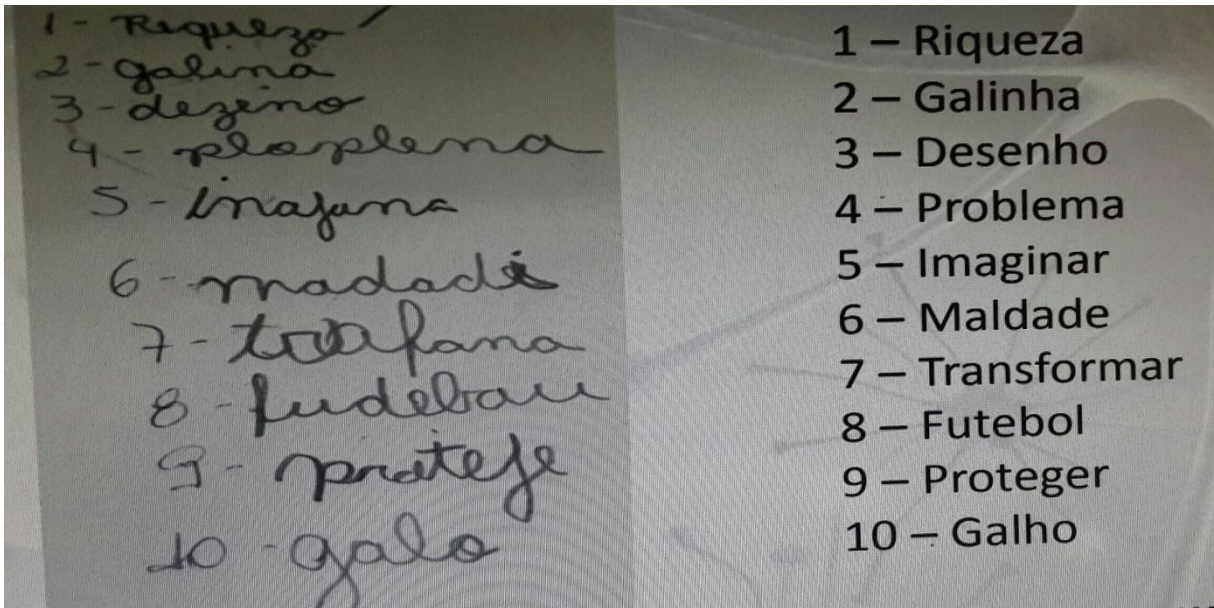 1 - Riqueza
2 - galina
3 - dezeno
4 - ploplena
5 - inajana
6 - madade
7 - trafana
8 - fudebau
9 - prateje
10 - galo
1 – Riqueza
2 – Galinha
3 – Desenho
4 – Problema
5 – Imaginar
6 – Maldade
7 – Transformar
8 – Futebol
9 – Proteger
10 – Galho